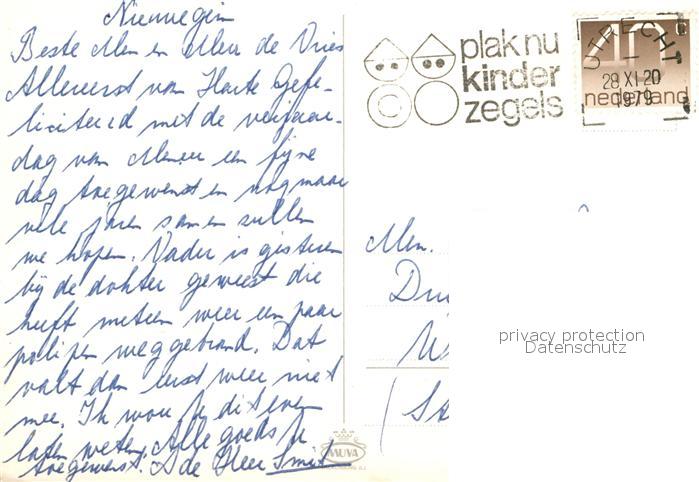 Nieuwegein
Beste Men en Meu de Vries
Allereerst van Harte Gefe-
liciteerd met de verjaar-
dag van Meneer een fijne
dag toegewenst en nog maar
vele jaren samen zullen
we hopen. Vader is gisteren
bij de dokter geweest die
heeft meteen weer een paar
poliepen weggebrand. Dat
valt dan eerst weer niet
mee. Ik wou je dit even
laten weten. Alle goeds je
toegewenst. de Heer Smit
plak nu
kinder
zegels
UTRECHT
28 XI-20
1979
nederland
Men.
privacy protection
Datenschutz
MUVA